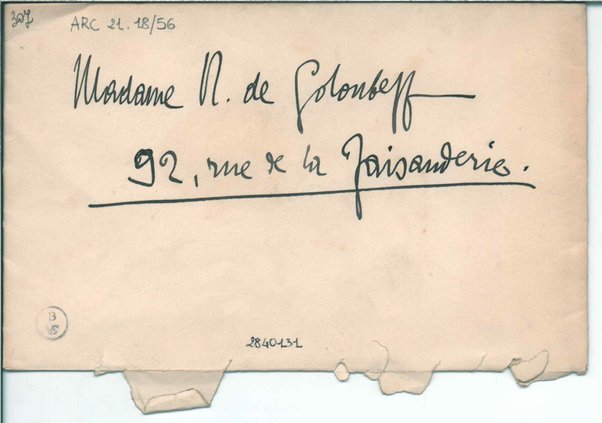 307
ARC 21. 18/56
Madame N. de Goloubeff
92, rue de la Faisanderie.
2840131